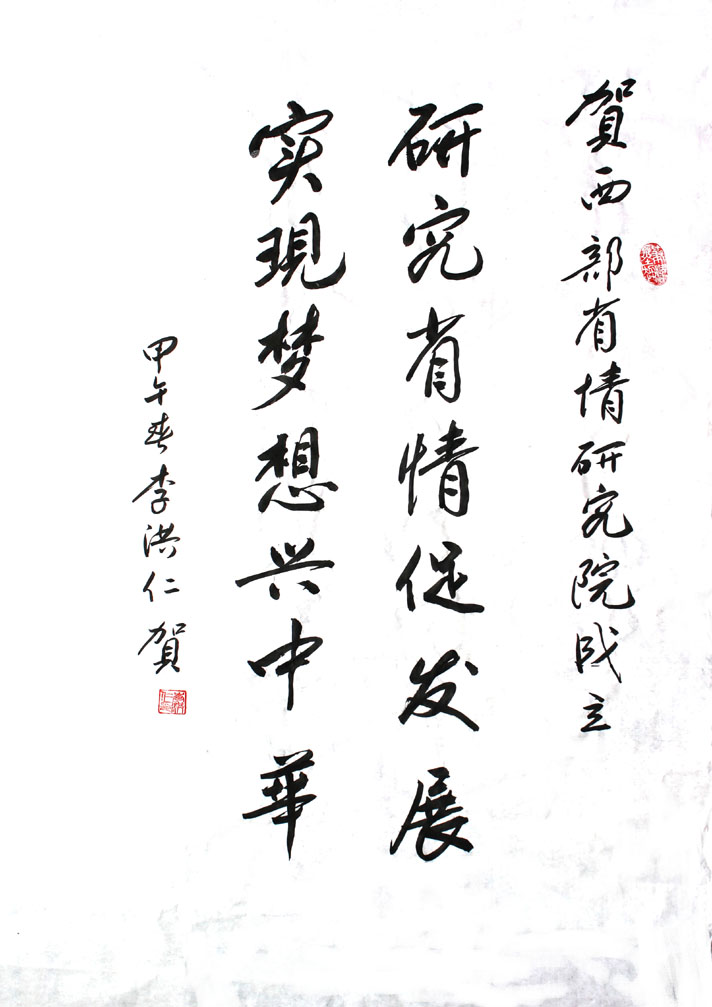 賀西部省情研究院成立
研究省情促发展
实現梦想兴中華
甲午春李洪仁賀